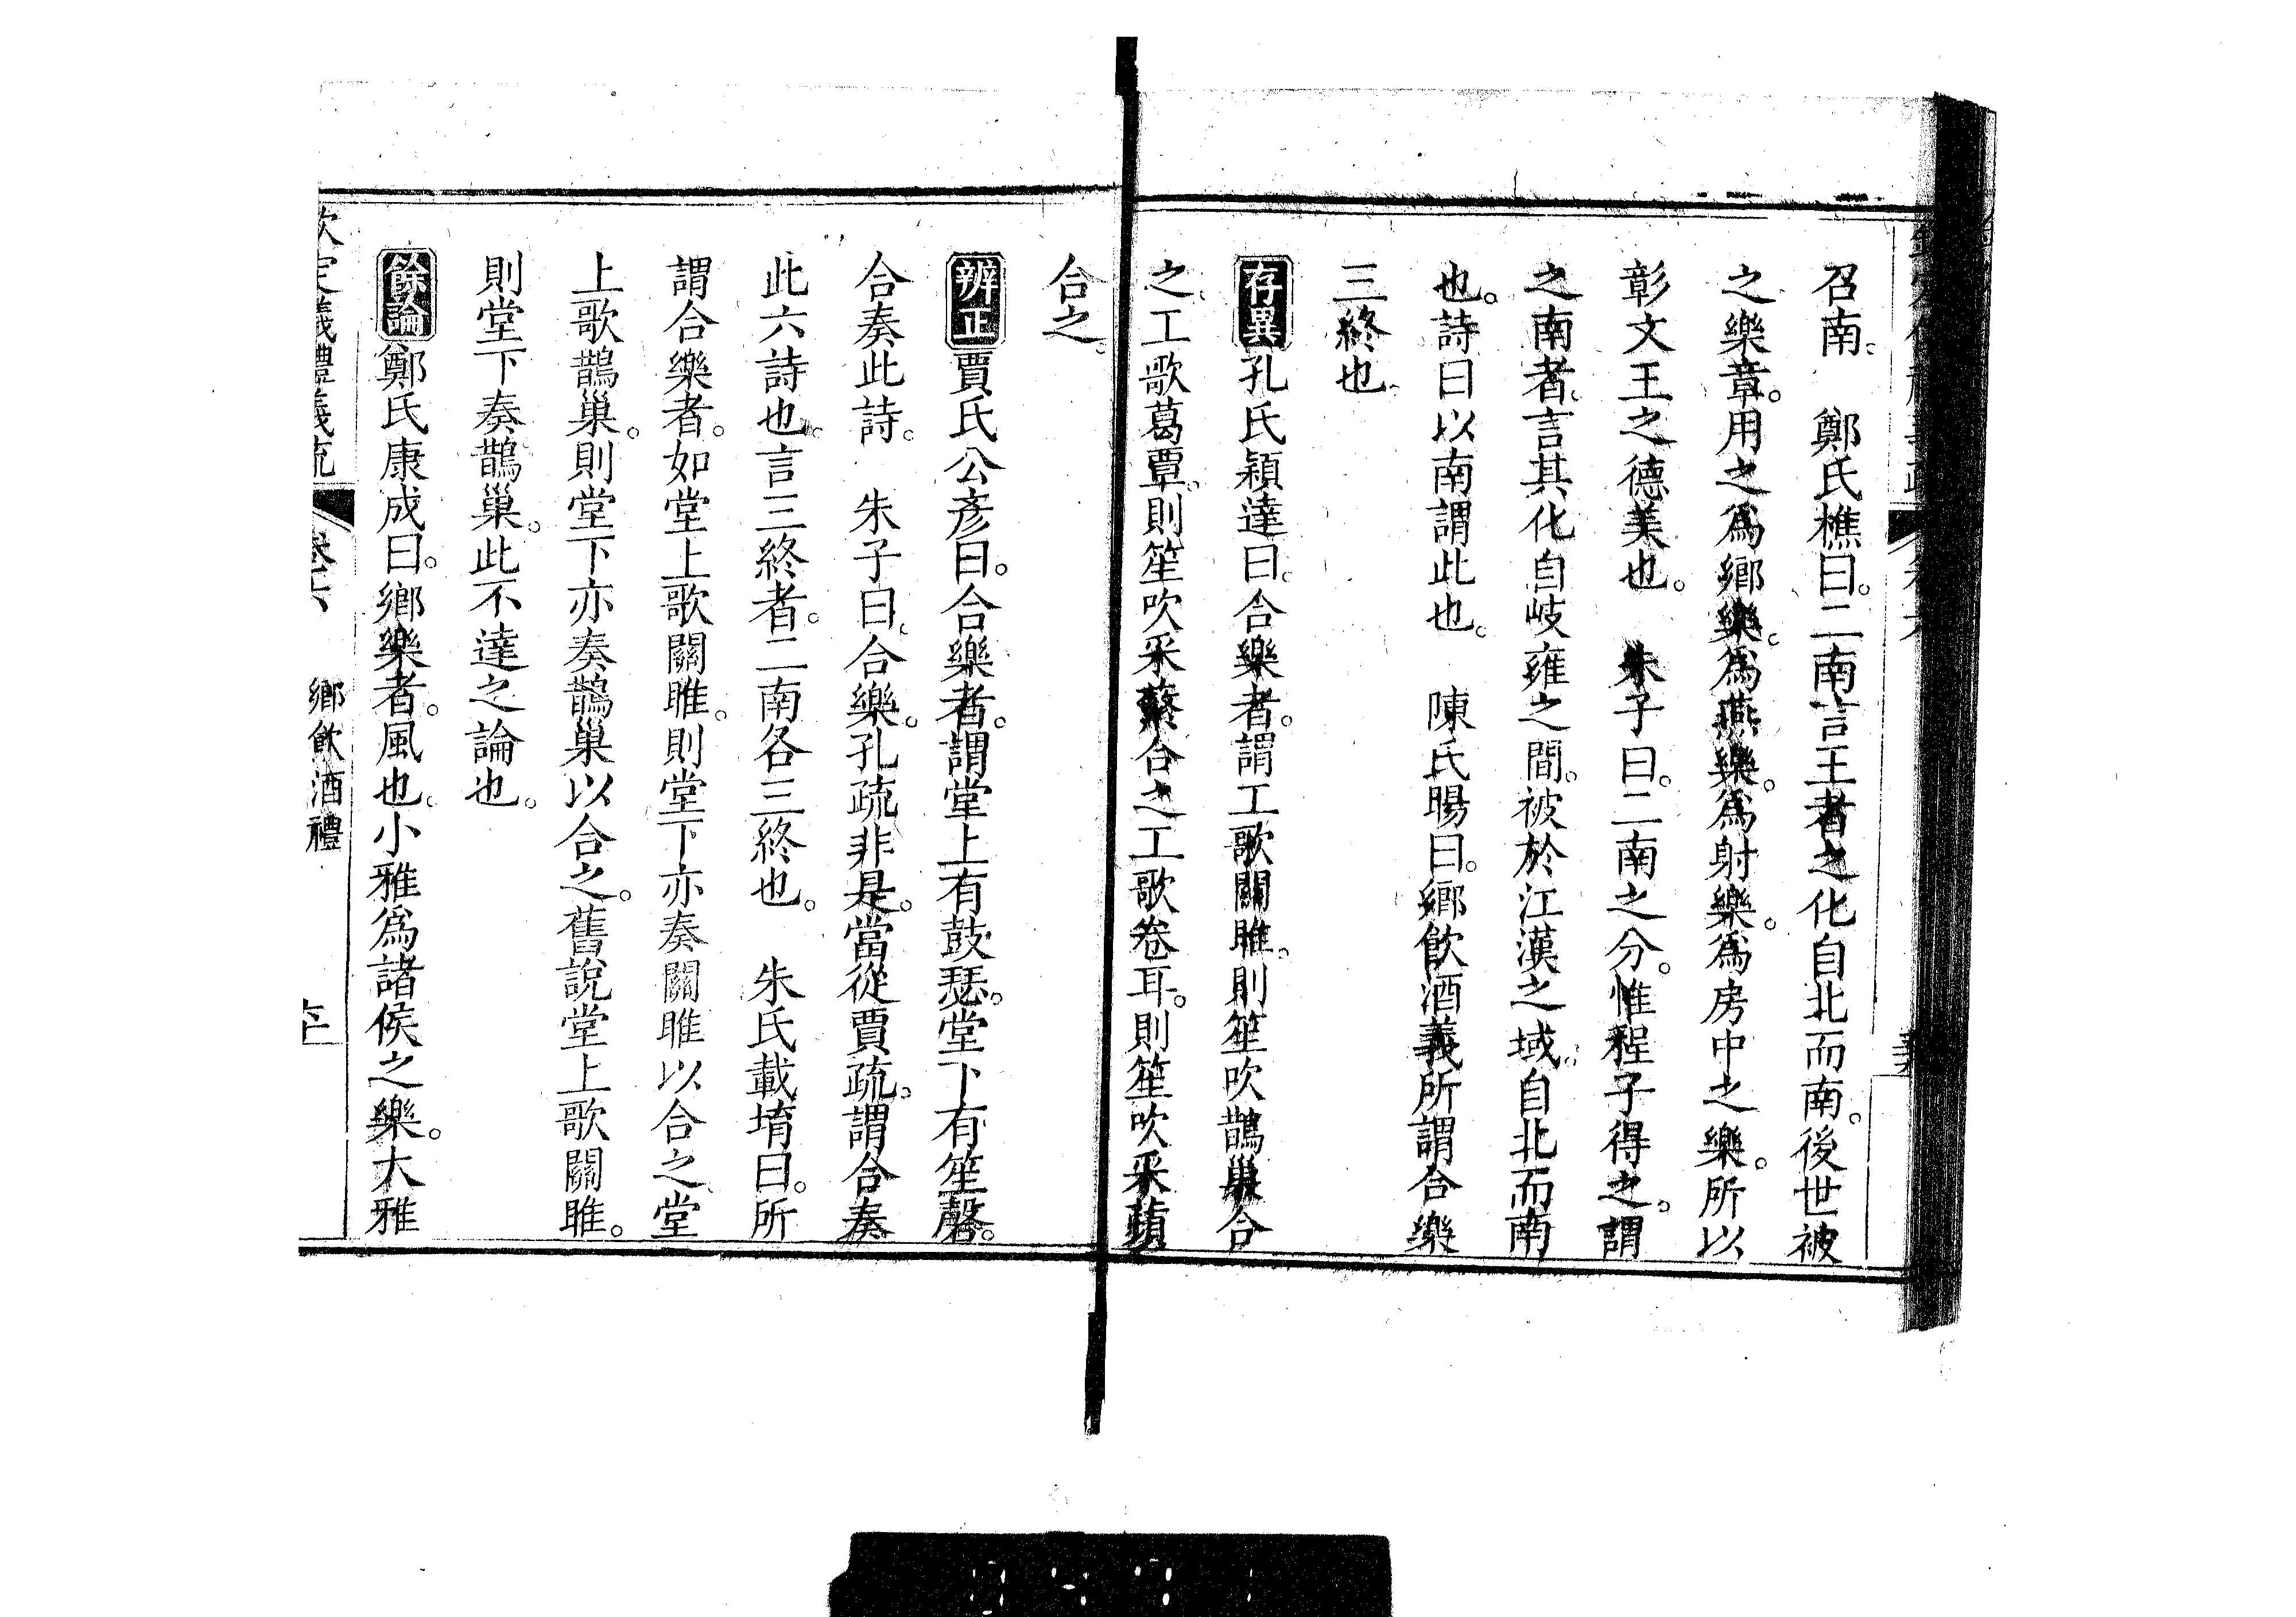 召南。　鄭氏樵曰。二南言王者之化自北而南。後世被
之樂章。用之爲鄉樂。爲燕樂。爲射樂。爲房中之樂。所以
彰文王之德美也。　朱子曰。二南之分。惟程子得之。謂
之南者。言其化自岐雍之間。被於江漢之域。自北而南
也。詩曰以南謂此也。　陳氏暘曰。鄉飲酒義所謂合樂
三終也。
存異孔氏穎達曰。合樂者。謂工歌關雎。則笙吹鵲巢合
之。工歌葛覃。則笙吹采蘩合之。工歌卷耳。則笙吹采蘋
合之。
辨正賈氏公彥曰。合樂者。謂堂上有鼓瑟。堂下有笙磬。
合奏此詩。　朱子曰。合樂。孔疏非是。當從賈疏。謂合奏
此六詩也。言三終者。二南各三終也。　朱氏載堉曰。所
謂合樂者。如堂上歌關雎。則堂下亦奏關雎以合之。堂
上歌鵲巢。則堂下亦奏鵲巢以合之。舊說堂上歌關雎。
則堂下奏鵲巢。此不達之論也。
餘論鄭氏康成曰。鄉樂者。風也。小雅爲諸侯之樂。大雅
欽定儀禮義疏　卷六　鄉飲酒禮